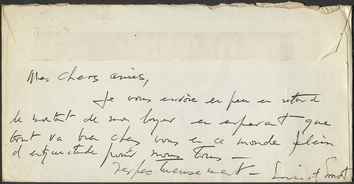 Mes chers amis,
Je vous envoie un peu en retard
le montant de mon loyer en espérant que
tout va bien chez vous en ce monde plein
d'incertitude pour nous tous —
Respectueusement —